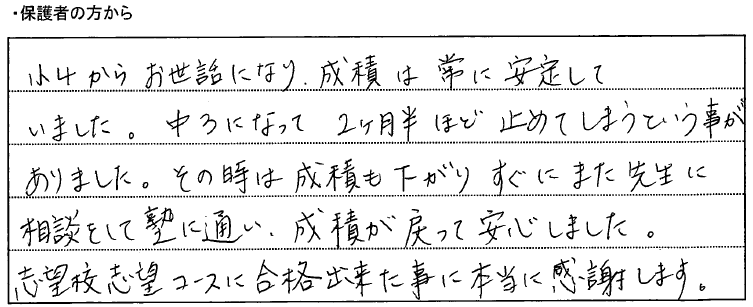 ・保護者の方から
小4からお世話になり、成積は常に安定して
いました。中3になって2ヶ月半ほど止めてしまうという事が
ありました。その時は成積も下がりすぐにまた先生に
相談をして塾に通い、成積が戻って安心しました。
志望校志望コースに合格出来た事に本当に感謝します。